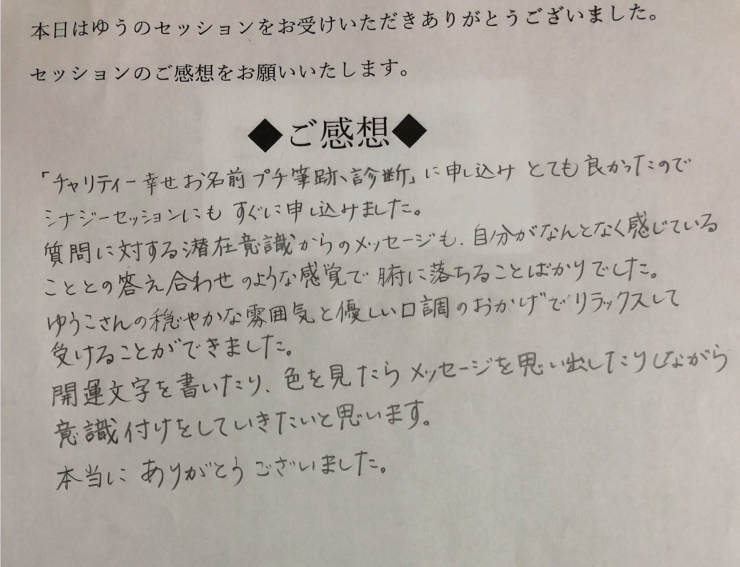 本日はゆうのセッションをお受けいただきありがとうございました。
セッションのご感想をお願いいたします。
◆ご感想◆
「チャリティー幸せお名前プチ筆跡診断」に申し込みとても良かったので
シナジーセッションにもすぐに申し込みました。
質問に対する潜在意識からのメッセージも、自分がなんとなく感じている
こととの答え合わせのような感覚で腑に落ちることばかりでした。
ゆうこさんの穏やかな雰囲気と優しい口調のおかげでリラックスして
受けることができました。
開運文字を書いたり、色を見たらメッセージを思い出したりしながら
意識付けをしていきたいと思います。
本当にありがとうございました。